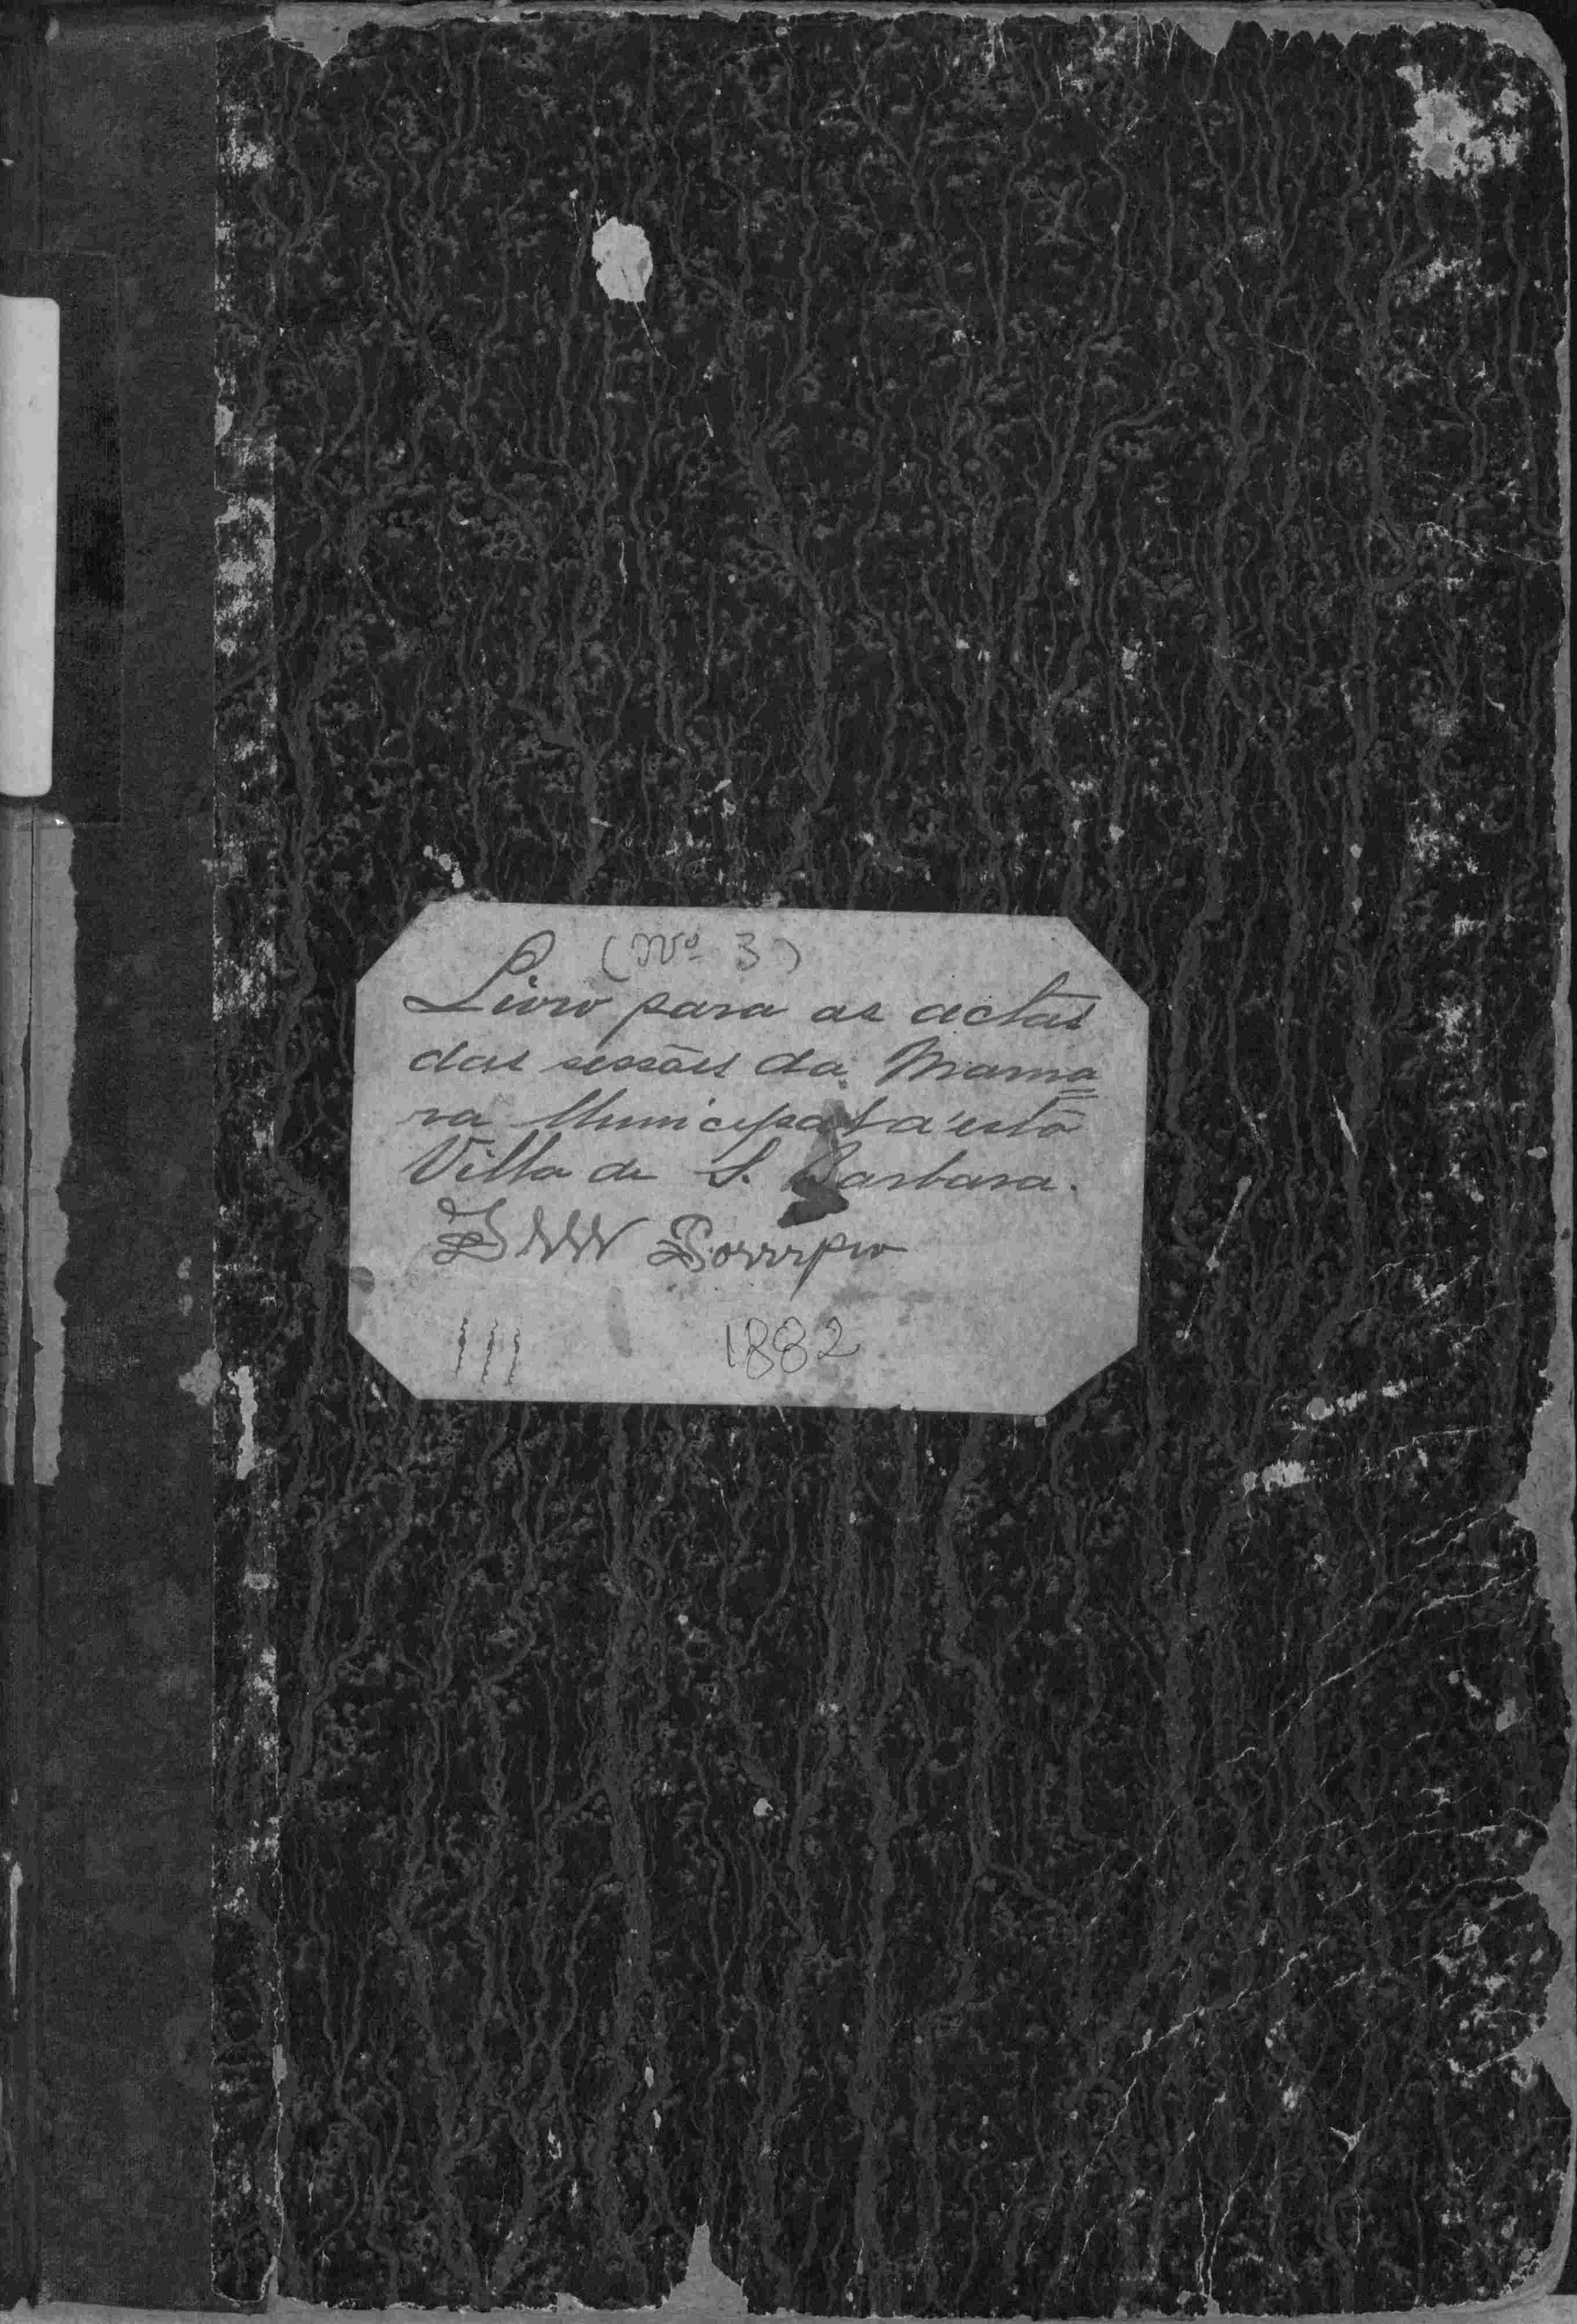 (Nº 3)
Livro para as actas
das sessões da Mama
ra Municipal d'esta
Villa de S. Barbara.
1882